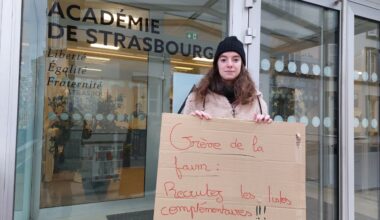 ACADÉMIE
DE STRASBOURG
Liberté
Égalité
Fraternité
Grève de la
faim :
Recrutez les listes
complémentaires !!